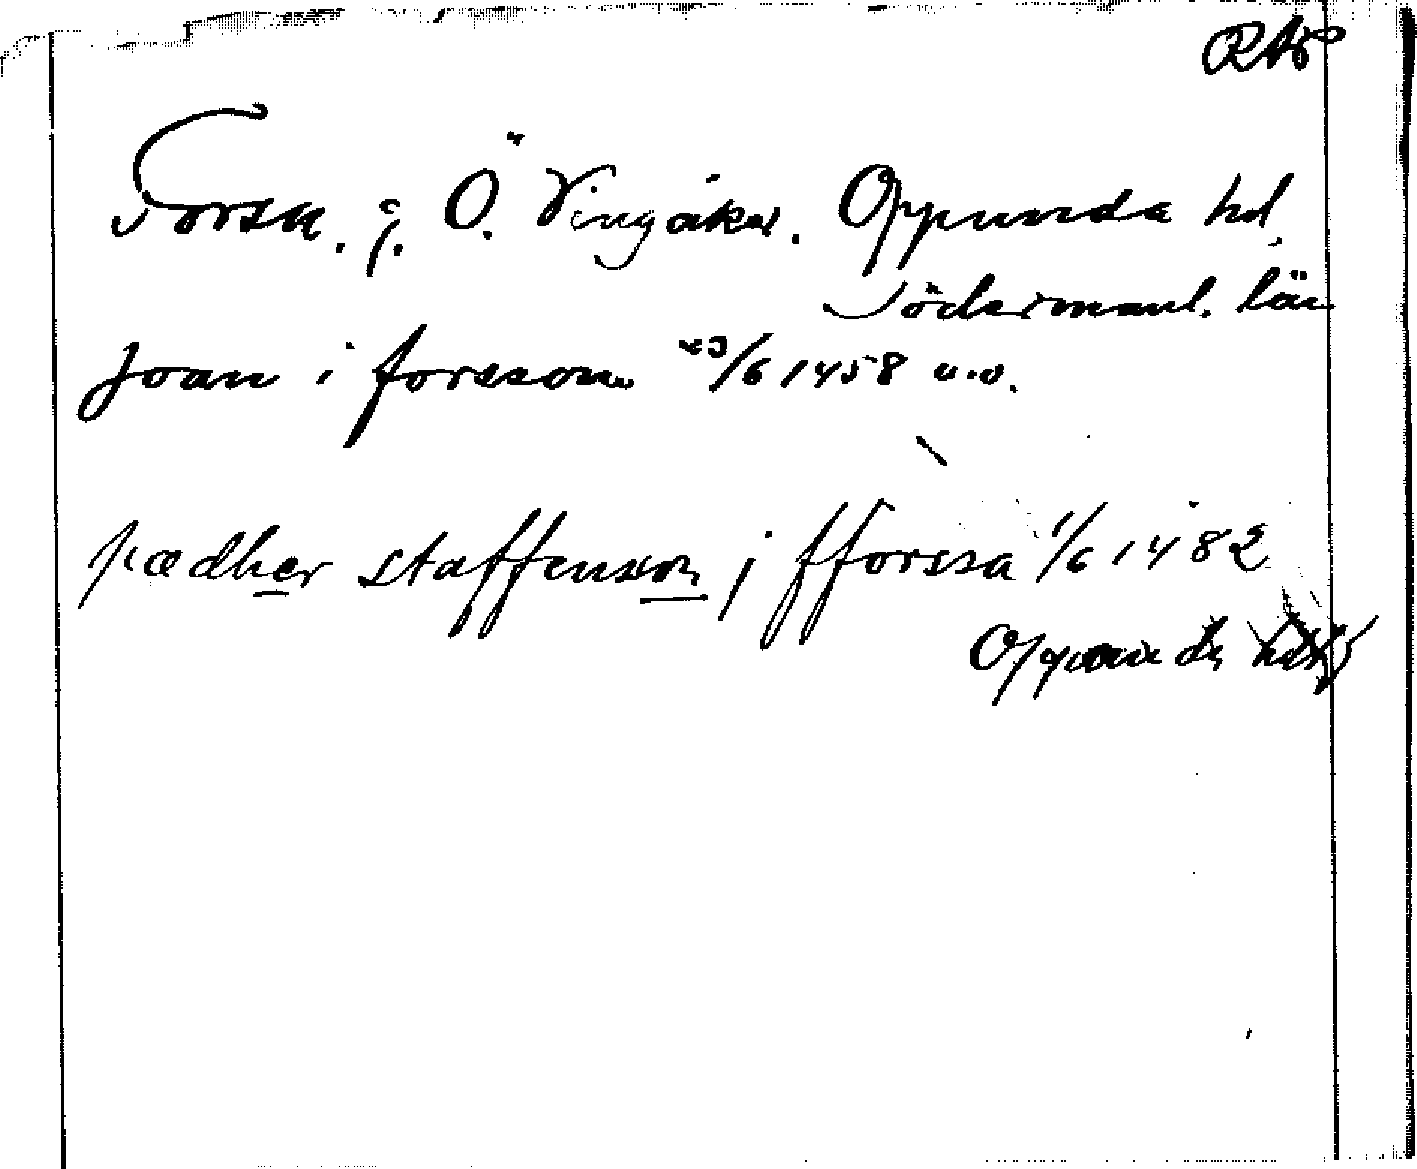 RAP
Forsa. g. Ö. Vingåker. Oppunda hd,
Södermanl. län
joan i forsson 23/6 1458 u.o.
pædher staffensson j fforssa 1/6 1482
Oppunda hd